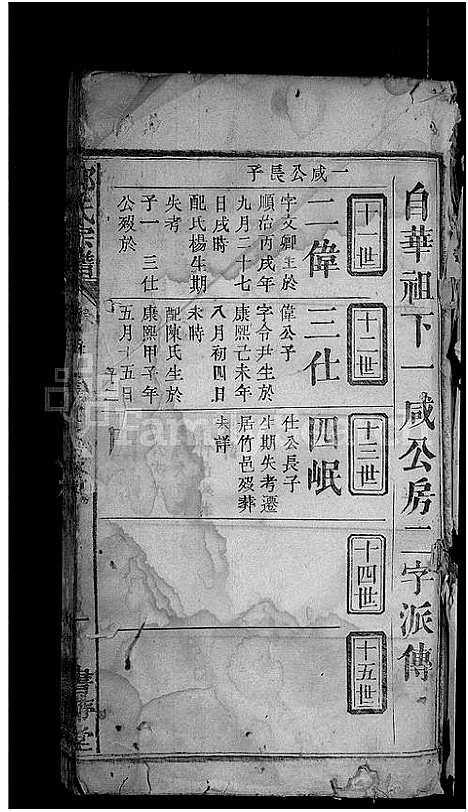 自華祖下一咸公房二字派傳
十一世
一咸公長子
二偉
字文卿生於
順治丙戌年
九月二十七
日戌時
配氏楊生期
失考
子一 三仕
公歿於
十二世
三仕
偉公子
字令尹生於
康熙己未年
八月初四日
未時
配陳氏生於
康熙甲子年
五月十五日
子二
十三世
四岷
仕公長子
生期失考遷
居竹邑歿葬
未詳
十四世
十五世
氏宗譜